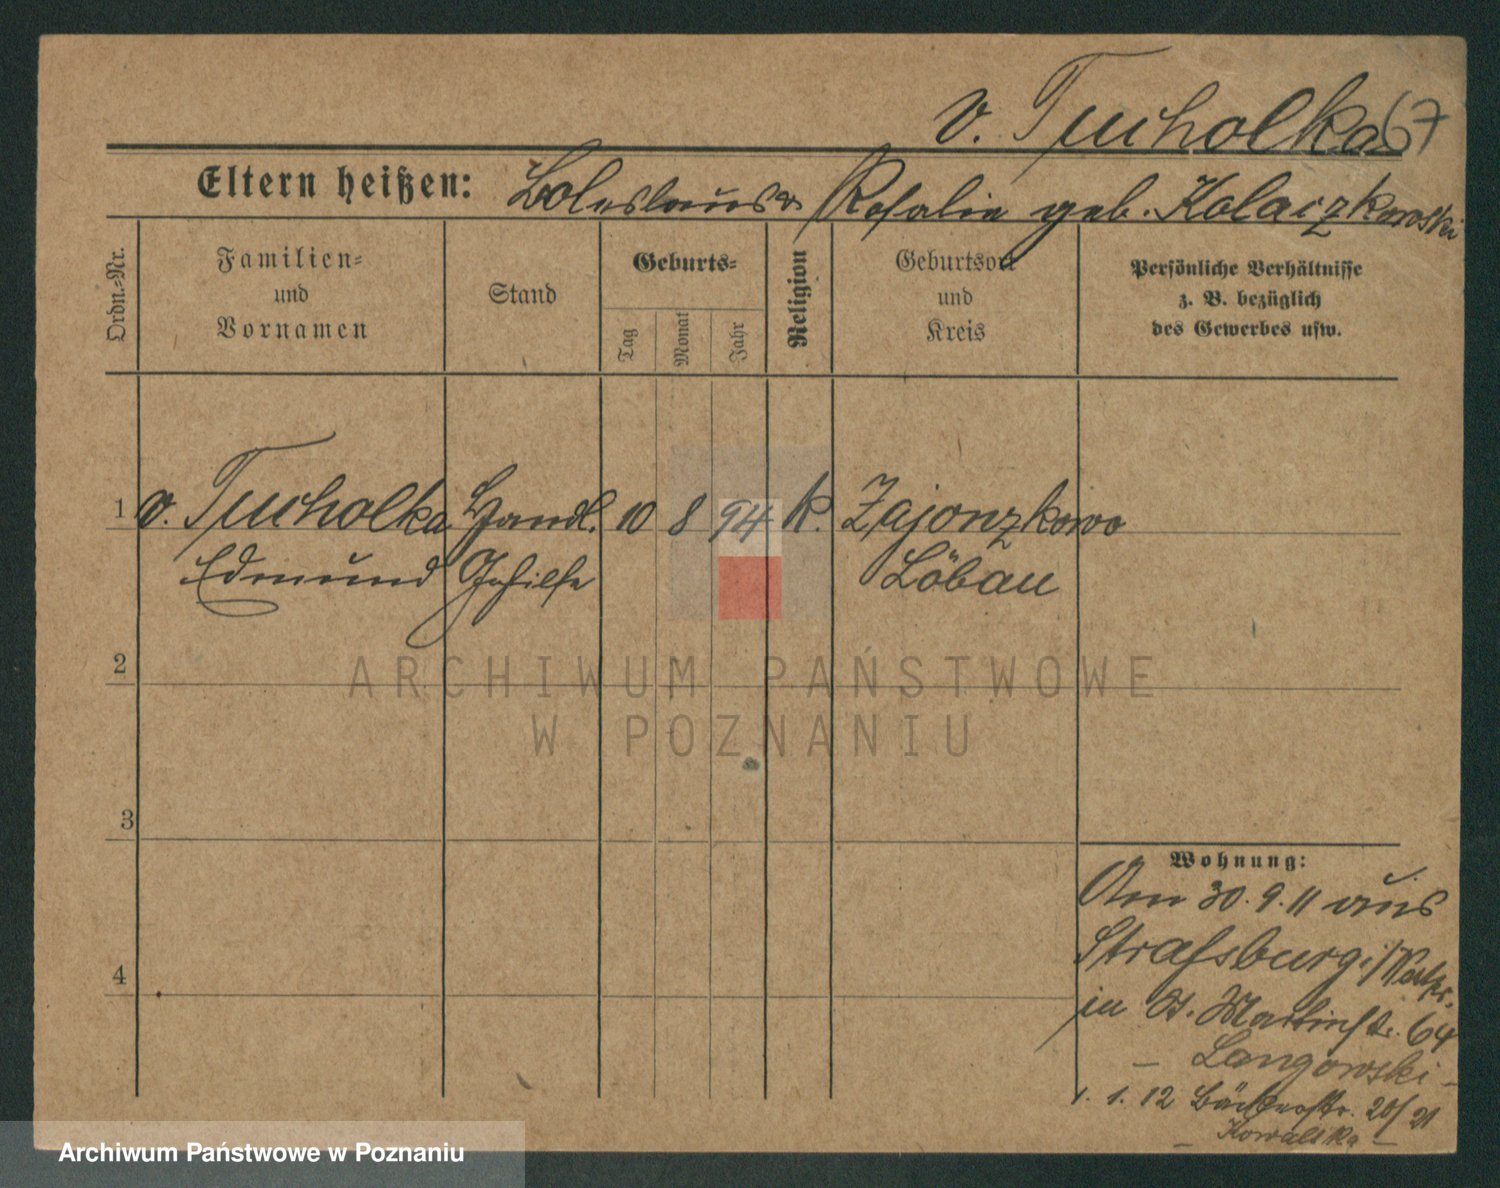 v. Tucholka 67
Eltern heißen: Boleslaus u Rosalie geb. Kolaczkowski
Ordn.-Nr.
Familien-
und
Vornamen
Stand
Geburts-
Tag
Monat
Jahr
Religion
Geburtsort
und
Kreis
Persönliche Verhältnisse
z. B. bezüglich
des Gewerbes usw.
1 v. Tucholka Handl. 10 8 94 k. Zajonzkowo
Edmund Gehilfe Löbau
2
ARCHIWUM PAŃSTWOWE
W POZNANIU
3
Wohnung:
Am 30.9.11 aus
Strassburg i/Westpr.
in St. Martinstr. 64
- Langowski -
1. 1. 12 Bäckerstr. 20/21
- Kowalska -
4
Archiwum Państwowe w Poznaniu